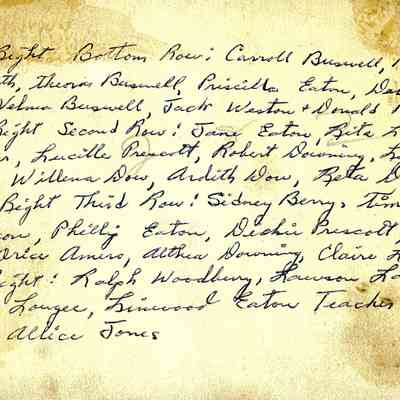 Right Bottom Row: Carroll Buswell,
th, Theoras Buswell, Priscilla Eaton,
Velma Buswell, Jack Weston & Donald
Right Second Row: Jane Eaton, Reta
r, Lucille Prescott, Robert Downing,
Willena Dow, Ardith Dow, Reta D
Right Third Row: Sidney Berry, Tim
con, Phillip Eaton, Dickie Prescott,
Orice Amero, Althea Downing, Claire
ight: Ralph Woodberry, Lawson
Lougee, Linwood Eaton Teacher
Allice Jones